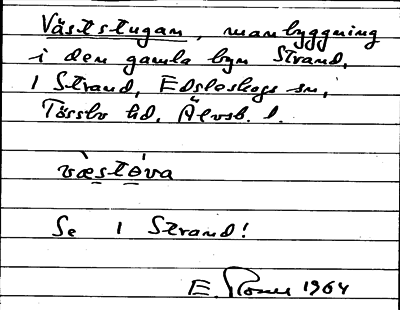 Väststugan, manbyggning
i den gamla byn Strand,
1 Strand, Edsleskogs sn,
Tössbo hd. Älvsb. l.
væ̀stə́va
Se 1 Strand!
E. 1964